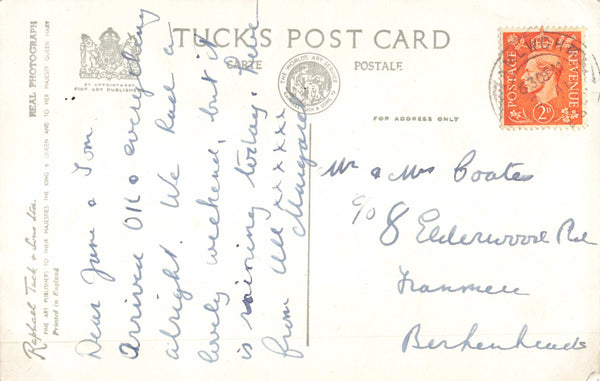 TUCK'S POST CARD
CARTE POSTALE
BY APPOINTMENT
FINE ART PUBLISHERS
THE WORLD'S ART SERVICE
FOR ADDRESS ONLY
REAL PHOTOGRAPH
Raphael Tuck & Sons Ltd.
FINE ART PUBLISHERS TO THEIR MAJESTIES THE KING & QUEEN AND TO HER MAJESTY QUEEN MARY
Printed in England
POSTAGE REVENUE
2D
Dear June & Tom.
Arrived OK & everything
alright. We had a
lovely weekend, but it
is raining today. Love
from All xxxxxx
Margaret
Mr & Mrs Coates
c/o 8 Elderwood Rd
Tranmere
Berkenheads